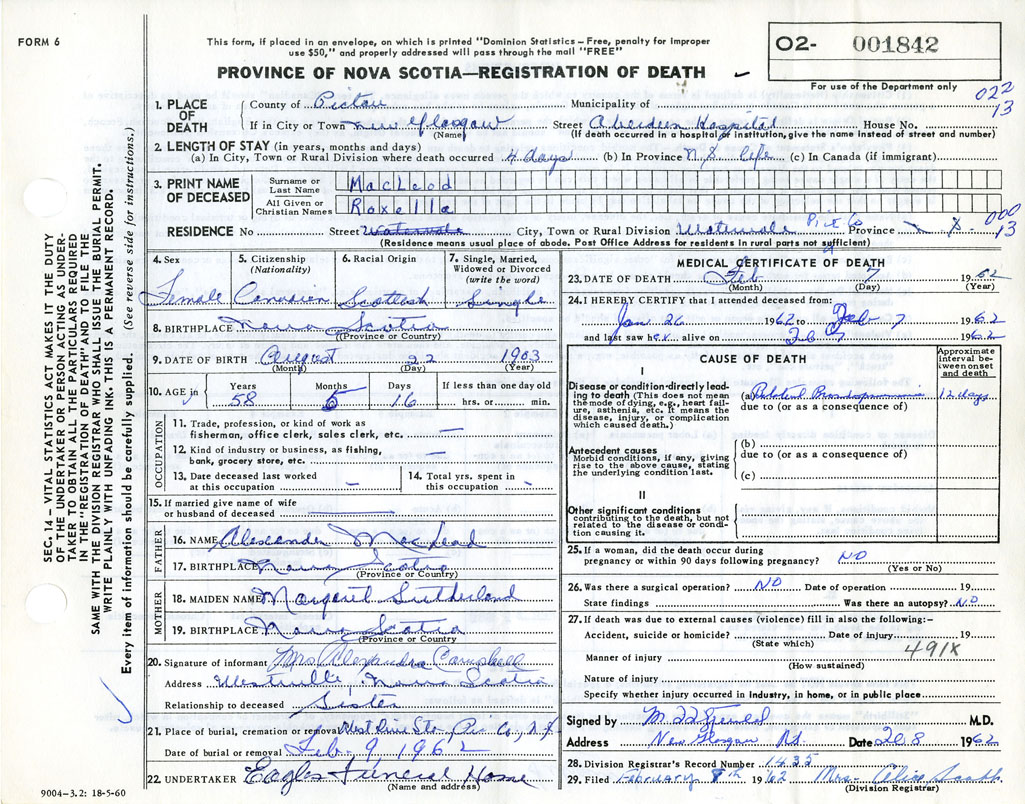 FORM 6
This form, if placed in an envelope, on which is printed "Dominion Statistics – Free, penalty for improper
use $50," and properly addressed will pass through the mail "FREE"
O2- 001842
PROVINCE OF NOVA SCOTIA—REGISTRATION OF DEATH
For use of the Department only
022
13
1. PLACE OF DEATH
County of Pictou Municipality of
If in City or Town New Glasgow Street Aberdeen Hospital House No.
(Name) (If death occurred in hospital or institution, give the name instead of street and number)
2. LENGTH OF STAY (in years, months and days)
(a) In City, Town or Rural Division where death occurred 4 days (b) In Province N S life (c) In Canada (if immigrant)
3. PRINT NAME OF DECEASED
Surname or Last Name MacLeod
All Given or Christian Names Roxella
RESIDENCE No Street Watervale City, Town or Rural Division Watervale Pict Co Province N S - 000 13
(Residence means usual place of abode. Post Office Address for residents in rural parts not sufficient)
4. Sex Female
5. Citizenship (Nationality) Canadian
6. Racial Origin Scottish
7. Single, Married, Widowed or Divorced (write the word) Single
8. BIRTHPLACE Nova Scotia
(Province or Country)
9. DATE OF BIRTH August 22 1903
(Month) (Day) (Year)
10. AGE in Years 58 Months 5 Days 16 If less than one day old hrs. or min.
OCCUPATION
11. Trade, profession, or kind of work as
fisherman, office clerk, sales clerk, etc. —
12. Kind of industry or business, as fishing,
bank, grocery store, etc. —
13. Date deceased last worked at this occupation -
14. Total yrs. spent in this occupation -
15. If married give name of wife
or husband of deceased
FATHER
16. NAME Alexander MacLeod
17. BIRTHPLACE Nova Scotia
(Province or Country)
MOTHER
18. MAIDEN NAME Margaret Sutherland
19. BIRTHPLACE Nova Scotia
(Province or Country)
20. Signature of informant Mrs Alexandra Campbell
Address Westville, Nova Scotia
Relationship to deceased Sister
21. Place of burial, cremation or removal West River Sta. Pic Co., N.S.
Date of burial or removal Feb. 9 1962
22. UNDERTAKER Eagles Funeral Home
(Name and address)
9004–3.2: 18-5-60
MEDICAL CERTIFICATE OF DEATH
23. DATE OF DEATH Feb 7 1962
(Month) (Day) (Year)
24. I HEREBY CERTIFY that I attended deceased from:
Jan 26 1962 to Feb 7 1962
and last saw her alive on Feb 7 1962
CAUSE OF DEATH
Approximate interval between onset and death
I
Disease or condition directly leading to death (This does not mean the mode of dying, e.g., heart failure, asthenia, etc. It means the disease, injury, or complication which caused death.)
(a) Bilateral Bronchopneumonia 12 days
due to (or as a consequence of)
Antecedent causes
Morbid conditions, if any, giving rise to the above cause, stating the underlying condition last.
(b)
due to (or as a consequence of)
(c)
II
Other significant conditions
contributing to the death, but not related to the disease or condition causing it.
25. If a woman, did the death occur during
pregnancy or within 90 days following pregnancy? NO
(Yes or No)
26. Was there a surgical operation? NO Date of operation 19
State findings Was there an autopsy? NO
27. If death was due to external causes (violence) fill in also the following:–
Accident, suicide or homicide? Date of injury 19
(State which)
491X
Manner of injury
(How sustained)
Nature of injury
Specify whether injury occurred in industry, in home, or in public place
Signed by M.D.
Address New Glasgow Date 20 8 1962
28. Division Registrar's Record Number 1435
29. Filed February 8th 1962 Mrs. Alice
(Division Registrar)
SEC. 14 – VITAL STATISTICS ACT MAKES IT THE DUTY
OF THE UNDERTAKER OR PERSON ACTING AS UNDER-
TAKER TO OBTAIN ALL THE PARTICULARS REQUIRED
IN THE "REGISTRATION OF DEATH" AND TO FILE THE
SAME WITH THE DIVISION REGISTRAR WHO SHALL ISSUE THE BURIAL PERMIT.
WRITE PLAINLY WITH UNFADING INK. THIS IS A PERMANENT RECORD.
Every item of information should be carefully supplied. (See reverse side for instructions.)